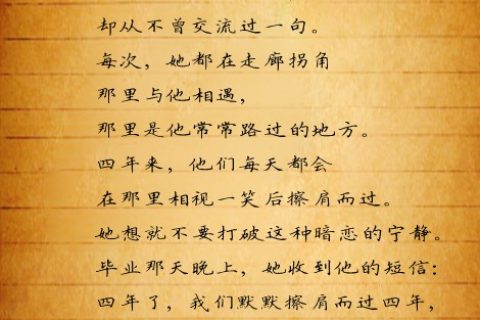 却从不曾交流过一句。
每次，她都在走廊拐角
那里与他相遇，
那里是他常常路过的地方。
四年来，他们每天都会
在那里相视一笑后擦肩而过。
她想就不要打破这种暗恋的宁静。
毕业那天晚上，她收到他的短信：
四年了，我们默默擦肩而过四年，